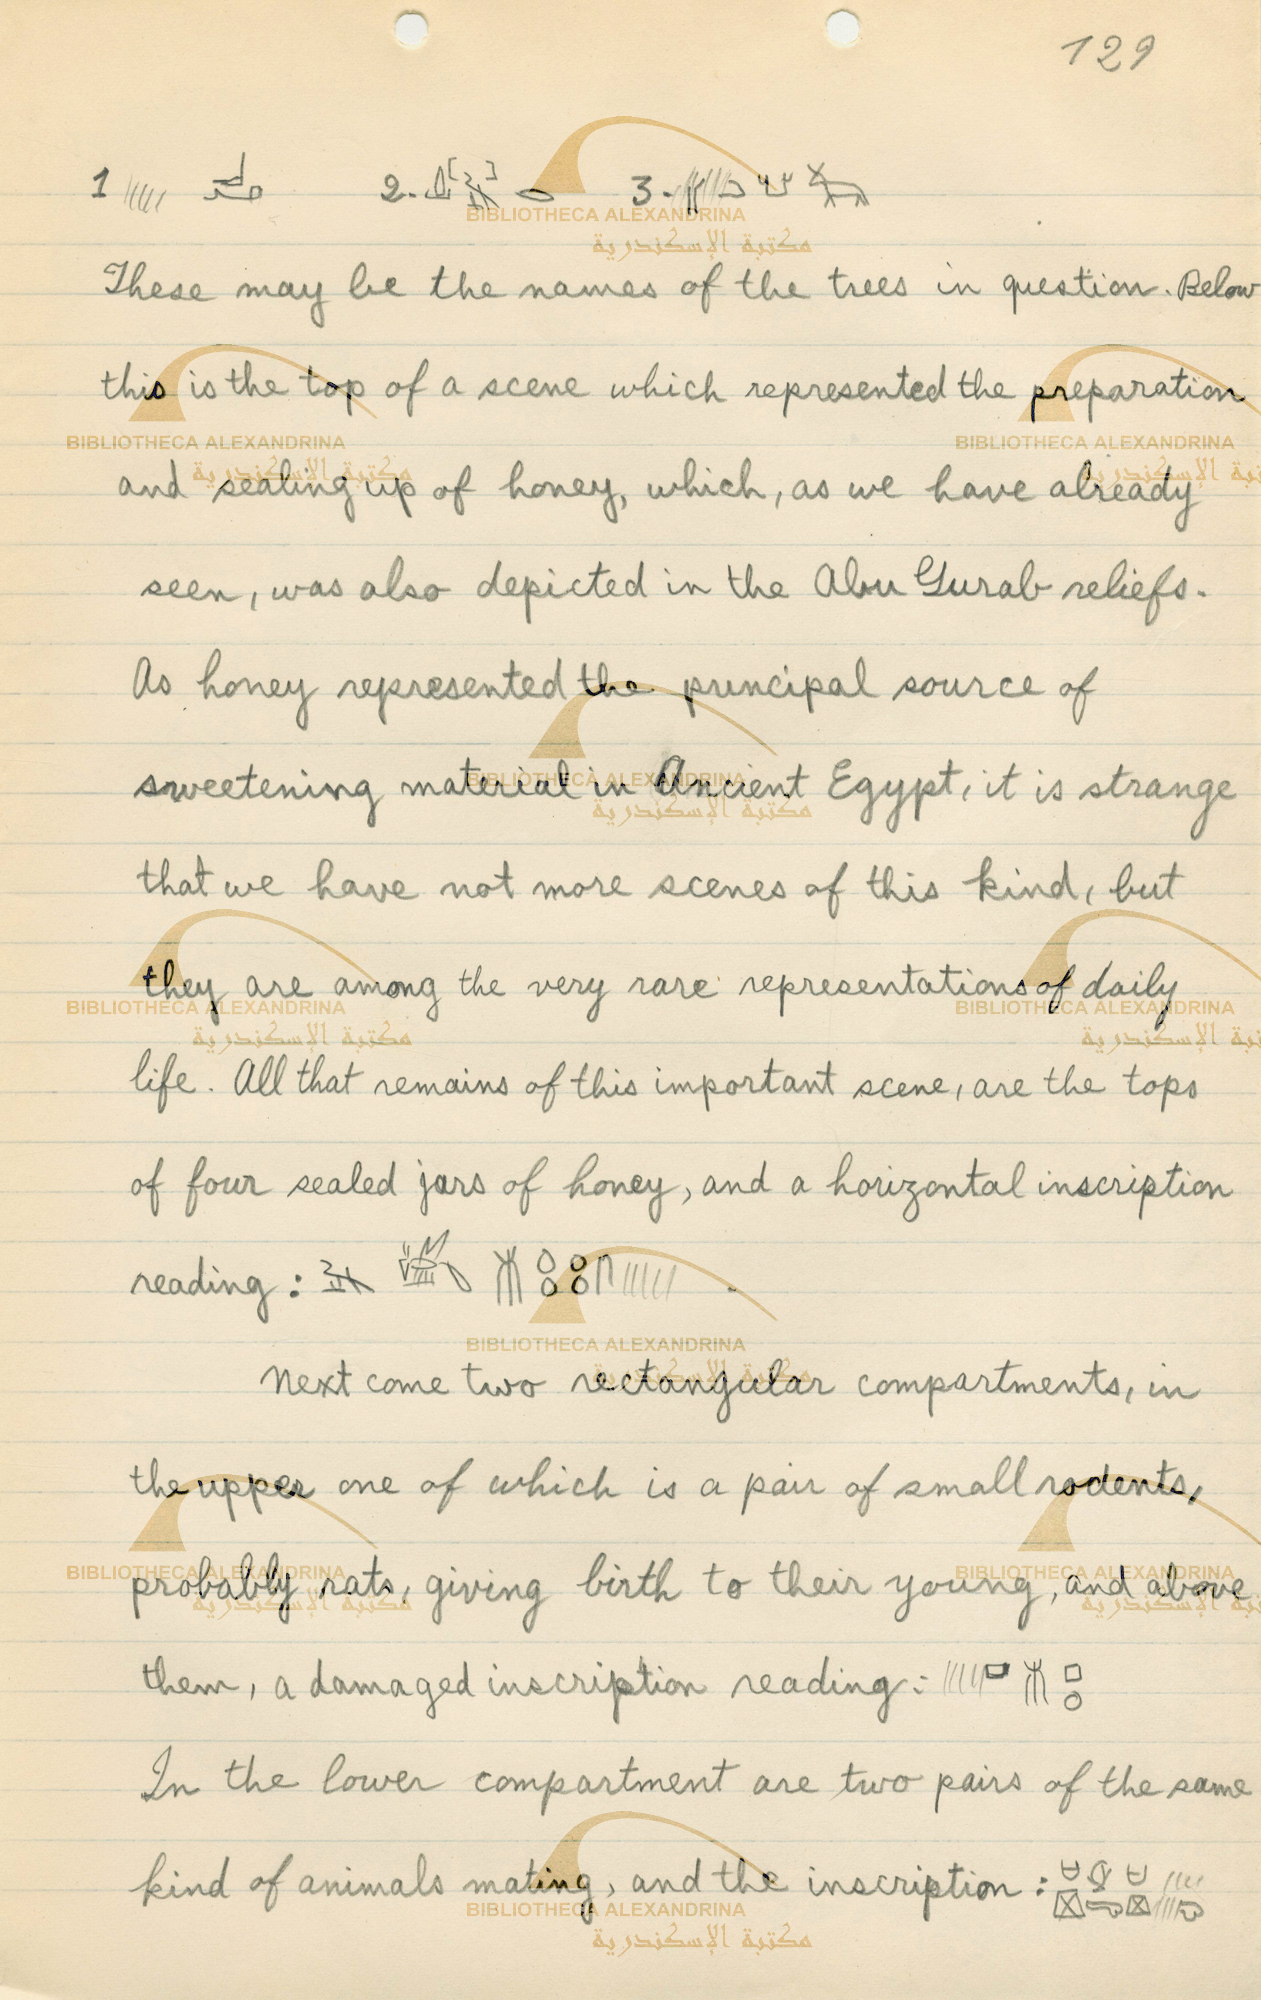 129
1 2. 3.
These may be the names of the trees in question. Below
this is the top of a scene which represented the preparation
and sealing up of honey, which, as we have already
seen, was also depicted in the Abu Gurab reliefs.
As honey represented the principal source of
sweetening material in Ancient Egypt, it is strange
that we have not more scenes of this kind, but
they are among the very rare representations of daily
life. All that remains of this important scene, are the tops
of four sealed jars of honey, and a horizontal inscription
reading :
Next come two rectangular compartments, in
the upper one of which is a pair of small rodents,
probably rats, giving birth to their young, and above
them, a damaged inscription reading :
In the lower compartment are two pairs of the same
kind of animals mating, and the inscription :
BIBLIOTHECA ALEXANDRINA
مكتبة الإسكندرية